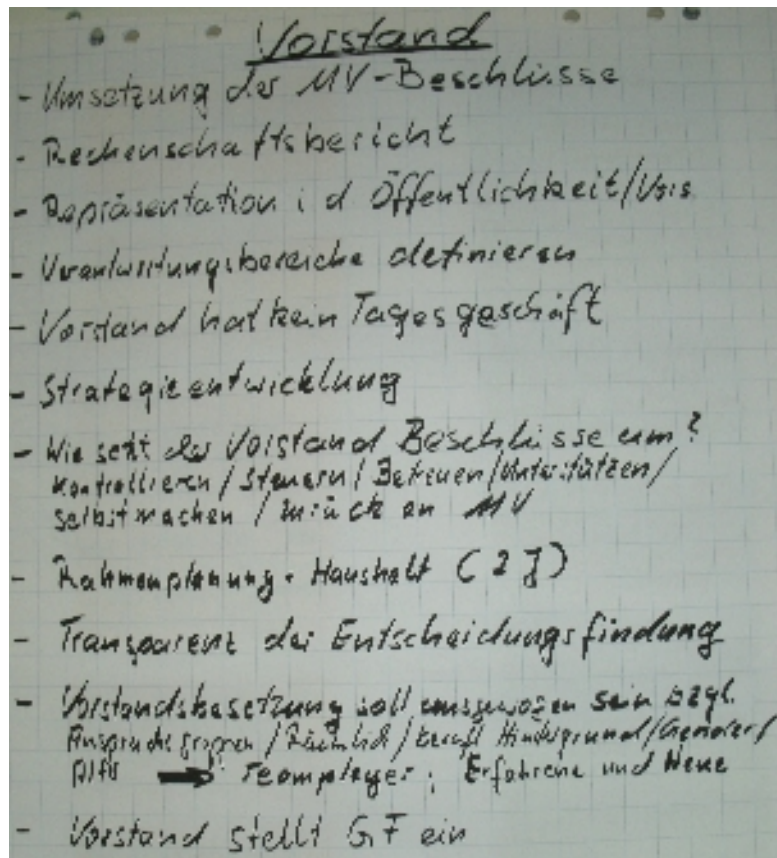 Vorstand
- Umsetzung der MV-Beschlüsse
- Rechenschaftsbericht
- Repräsentation i d Öffentlichkeit/
- Verantwortungsbereiche definieren
- Vorstand hat kein Tagesgeschäft
- Strategieentwicklung
- Wie setzt der Vorstand Beschlüsse um?
Kontrollieren/Steuern/Betreuen/Unterstützen/
selbstmachen/zurück an MV
- Rahmenplanung + Haushalt (2J)
- Transparenz der Entscheidungsfindung
- Vorstandsbesetzung soll ausgewogen sein bzgl.
Anspruchsgruppen/Räumlich/berufl Hintergrund/Gender/
Alter → Teamplayer; Erfahrene und Neue
- Vorstand stellt GF ein